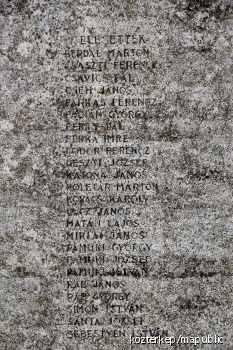 ELESETTEK
BERDÁL MÁRTON
CSÁSZTI FERENCZ
CSAVICS PÁL
CSEH JÁNOS
FARKAS FERENCZ
FECIÁN GYÖRGY
FERKA IMRE
FODOR FERENCZ
GESZTI JÓZSEF
KATONA JÁNOS
KOLETÁR MÁRTON
KOVÁCS KÁROLY
JÁNOS
MATÁN LAJOS
JÁNOS
PAMUKI GYÖRGY
PAMUKI JÓZSEF
PAMUKI ISTVÁN
PÁP JÁNOS
PÁP GYÖRGY
SIMON ISTVÁN
SÁNTA JÓZSEF
SEBESTYÉN ISTVÁN
kozterkep/mapublic